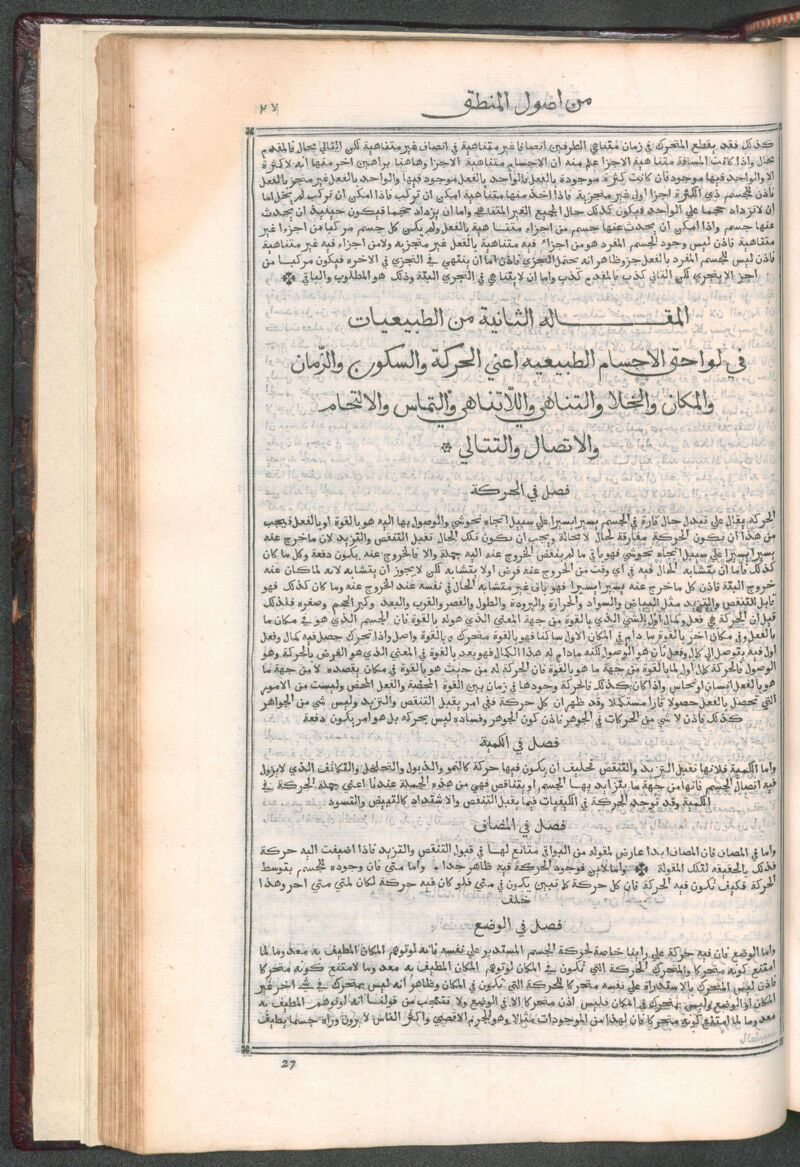 من اصول المنطق ٢٧
كذلك فقد يقطع المتحرك في زمان متناهي الطرفين انصافا غير متناهية في انصاف غير متناهية لكن التالي محال فالمقدم
محال واذا كانت المسافة متناهية الاجزا علم منه ان الاجسام متناهية الاجزا وهاهنا براهين اخر منها انه لا كثرة
الا والواحد فيها موجود فان كانت كثرة موجودة بالفعل فالواحد بالفعل موجود فيها والواحد بالفعل غير متجز بالفعل
فاذن للجسم ذي الكثرة اجزا اولى غير متجزية فاذا اخذ منها متناهية امكن ان تركب فاذا امكن ان تركب لم يخل اما
ان لا تزداد حجما على الواحد فيكون كذلك حال الجميع الغير المتناهي واما ان يزداد حجما فيكون حينيذ ان يحدث
عنها جسم واذا امكن ان يحدث عنها جسم من اجزاء متناهية بالفعل ولم يكن كل جسم مركبا من اجزاء غير
متناهية فاذن ليس وجود الجسم المفرد هو من اجزاء فيه متناهية بالفعل غير متجزيه ولا من اجزاء فيه غير متناهية
فاذن ليس للجسم المفرد بالفعل جزو ظاهر انه يحتمل التجزي فاذن اما ان ينتهي في التجزي في الاخره فيكون مركبا من
اجز الا يتجزي لكن التالي كذب فالمقدم كذب واما ان لا يتناهي في التجري البتة وذلك هو المطلوب والباقي
المقاله الثانية من الطبيعيات
في لواحق الاجسام الطبيعيه اعني الحركة والسكون والزّمان
والمكان والخلا والتناهي واللّاتناهي والتماس والالتحام
والاتصال والتتالي
فصل في الحركة
الحركة يقال على تبدل حال قارة في الجسم يسيرا يسيرا على سبيل اتجاه نحو شي والوصول بها اليه هو بالقوة او بالفعل فيجب
من هذا ان يكون الحركة مفارقة لحال لا محالة ويجب ان يكون تلك الحال تقبل التنقص والتزيد لان ما خرج عنه
يسيرا يسيرا على سبيل اتجاه نحو شي فهو باق ما لم ينقض الخروج عنه اليه جملة والا فالخروج عنه يكون دفعة وكل ما كان
كذلك فاما ان يتشابه الحال فيه في اي وقت من الخروج عنه فرض اولا يتشابه لكن لا يجوز ان يتشابه لانه لما كان عنه
خروج البتة فاذن كل ما خرج عنه يسيرا يسيرا فهو باق غير متشابه الحال في نفسه عند الخروج عنه وما كان كذلك فهو
قابل للتنقص والتزيد مثل البياض والسواد والحرارة والبرودة والطول والقصر والقرب والبعد وكبر الحجم وصغره فلذلك
قيل ان الحركة هي فعل وكمال اول للشي الذي بالقوة من جهة المعني الذي هو له بالقوة فان الجسم الذي هو في مكان ما
بالفعل وفي مكان اخر بالقوة ما دام في المكان الاول ساكنا فهو بالقوة متحرك و بالقوة واصل واذا تحرك حصل فيه كمال وفعل
اول فيه يتوصل الي كمال وفعل ثان هو الوصول لكنه ما دام له هذا الكمال فهو بعد بالقوة في المعني الذي هو الغرض بالحركة وهو
الوصول فالحركة كمال اول لما بالقوة من جهة ما هو بالقوة فان الحركة له من حيث هو بالقوة في مكان يقصده لا من جهة ما
هو بالفعل انسان او نحاس واذا كان كذلك فالحركة وجودها في زمان بين القوة المحضة والفعل المحض وليست من الامور
التي تحصل بالفعل حصولا قارا مستكملا وقد ظهر ان كل حركة ففي امر يقبل التنقص والتزيد وليس شي من الجواهر
كذلك فاذن لا شي من الحركات في الجوهر فاذن كون الجوهر وفساده ليس بحركه بل هو امر يكون دفعة
فصل في الكمية
واما الكمية فلانها تقبل التزيد والتنقص فخليق ان يكون فيها حركة كالنمو والذبول والتخلخل والتكاثف الذي لا يزول
فيه اتصال الجسم فانها من جهة ما يتزايد بهـا الجسم او يتناقص فهي من هذه الجملة عندنا اعني جملة الحركة في
الكمية وقد توجد الحركة في الكيفيات فيما يقبل التنقص والاشتداد كالتبيض والتسود
فصل في المضاف
واما في المضاف فان المضاف ابدا عارض لمقوله من البواقي متابع لهـا في قبول التنقص والتزيد فاذا اضيفت اليه حركة
فذلك بالحقيقه لتلك المقولة واما الاين فوجود الحركة فيه ظاهر جدا واما متي فان وجوده للجسم بتوسط
الحركة فكيف تكون فيه الحركة فان كل حركة كما تبين يكون في متي فلو كان فيه حركة لكان لمتي متي اخر وهذا
خلف
فصل في الوضع
واما الوضع فان فيه حركة على راينا خاصة لحركة الجسم المستدير على نفسه فانه لو توهم المكان المطيف به معدوما لما
امتنع كونه متحركا والمتحرك الحركة التي تكون في المكان لو توهم المكان المطيف به معدوما لامتنع كونه متحركا
فاذن ليس المتحرك بالاستدارة على نفسه متحركا للحركة التي تكون في المكان وظاهر انه ليس بمتحرك في شي اخر غير
المكان او الوضع وليس بمتحرك في المكان فليس اذن متحركا الا في الوضع ولا تتعجب من قولنا انه لو توهم المطيف به
معدوما لما امتنع كونه متحركا فان لهذا من الموجودات مثالا وهو الجرم الاقصي واكثر الناس لا يرون وراه جسما يطيف
27